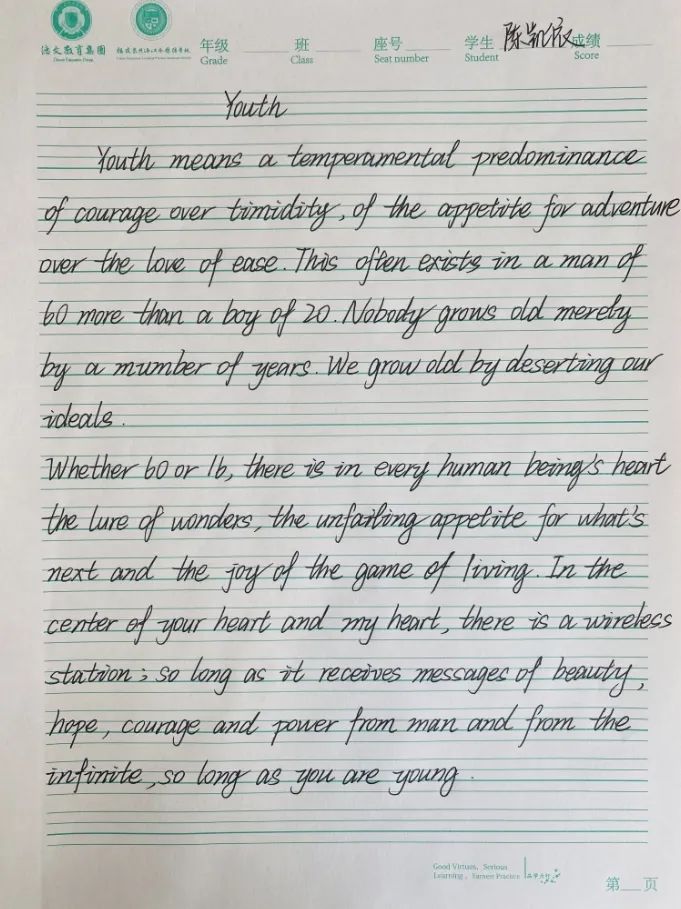 德文教育集团
年级 班 座号 学生 陈凯依 成绩
Grade Class Seat number Student Score
Youth
Youth means a temperamental predominance
of courage over timidity, of the appetite for adventure
over the love of ease. This often exists in a man of
60 more than a boy of 20. Nobody grows old merely
by a mumber of years. We grow old by deserting our
ideals.
Whether 60 or 16, there is in every human being's heart
the lure of wonders, the unfailing appetite for what's
next and the joy of the game of living. In the
center of your heart and my heart, there is a wireless
station; so long as it receives messages of beauty,
hope, courage and power from man and from the
infinite, so long as you are young.
Good Virtues, Serious
Learning, Earnest Practice
第 页